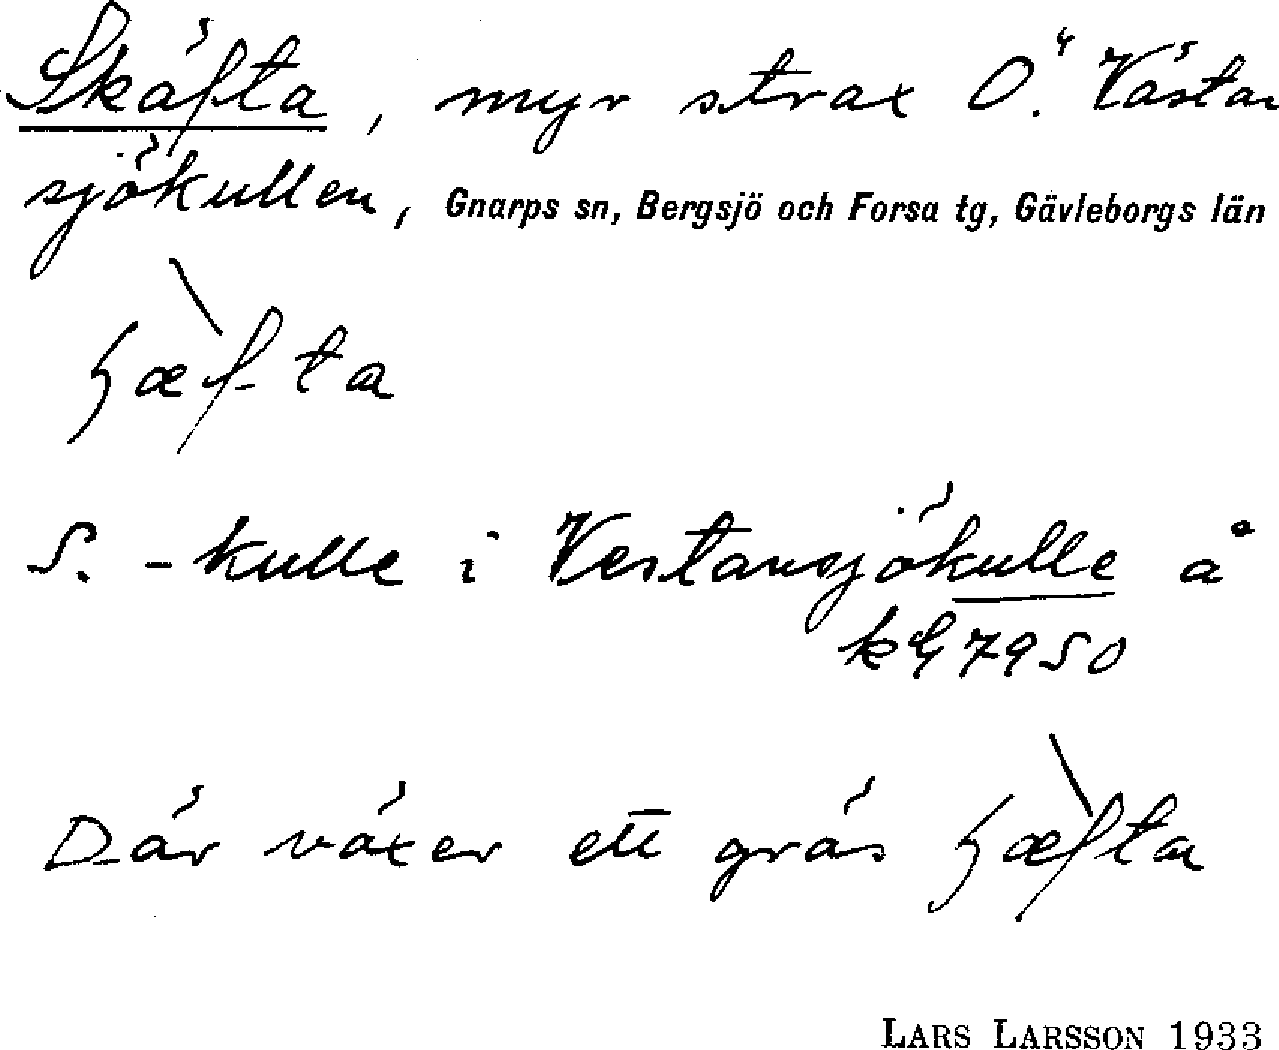 Skäfta, myr strax Ö. Västan
sjökullen, Gnarps sn, Bergsjö och Forsa tg, Gävleborgs län
ʂæ̀fta
S. -kulle i Vestansjökulle å
kG 7950
Där växer ett gräs ʂæ̀fta
LARS LARSSON 1933